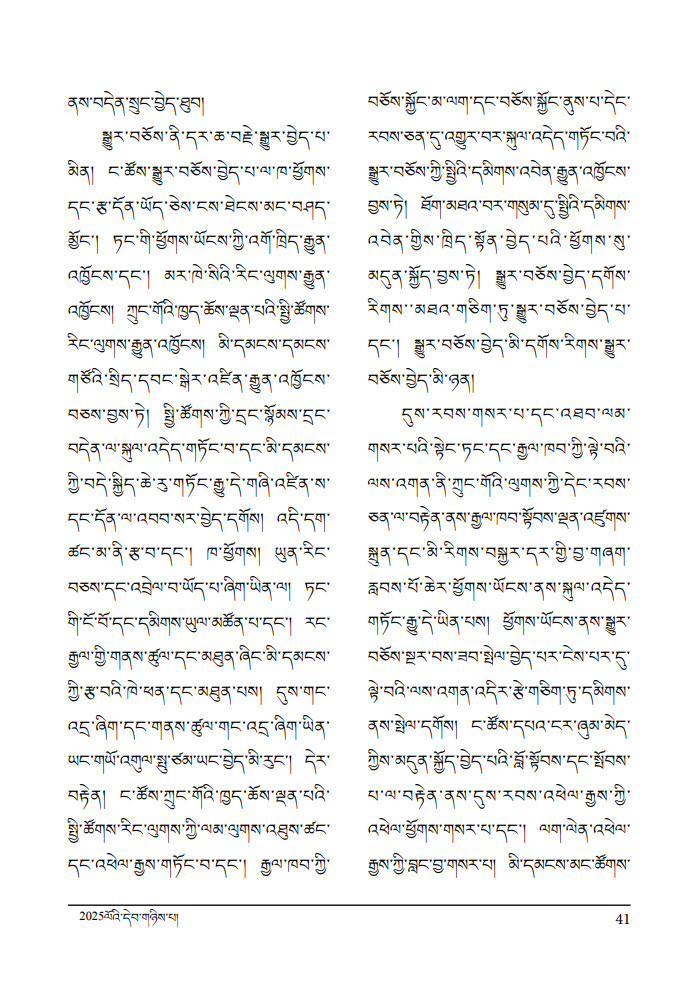 ནས་བདེན་སྲུང་བྱེད་ཐུབ།
སྒྱུར་བཅོས་ནི་དར་ཆ་བརྗེ་སྒྱུར་བྱེད་པ་
མིན། ང་ཚོས་སྒྱུར་བཅོས་བྱེད་པ་ལ་ཁ་ཕྱོགས་
དང་རྩ་དོན་ཡོད་ཅེས་ངས་ཐེངས་མང་བཤད་
མྱོང་། ཏང་གི་ཕྱོགས་ཡོངས་ཀྱི་འགོ་ཁྲིད་རྒྱུན་
འཁྱོངས་དང་། མར་ཁེ་སིའི་རིང་ལུགས་རྒྱུན་
འཁྱོངས། ཀྲུང་གོའི་ཁྱད་ཆོས་ལྡན་པའི་སྤྱི་ཚོགས་
རིང་ལུགས་རྒྱུན་འཁྱོངས། མི་དམངས་དམངས་
གཙོའི་སྲིད་དབང་སྒེར་འཛིན་རྒྱུན་འཁྱོངས་
བཅས་བྱས་ཏེ། སྤྱི་ཚོགས་ཀྱི་དྲང་སྙོམས་དྲང་
བདེན་ལ་སྐུལ་འདེད་གཏོང་བ་དང་མི་དམངས་
ཀྱི་བདེ་སྐྱིད་ཆེ་རུ་གཏོང་རྒྱུ་དེ་གཞི་འཛིན་ས་
དང་དོན་ལ་འབབ་སར་བྱེད་དགོས། འདི་དག་
ཚང་མ་ནི་རྩ་བ་དང་། ཁ་ཕྱོགས། ཡུན་རིང་
བཅས་དང་འབྲེལ་བ་ཡོད་པ་ཞིག་ཡིན་ལ། ཏང་
གི་ངོ་བོ་དང་དམིགས་ཡུལ་མཚོན་པ་དང་། རང་
རྒྱལ་གྱི་གནས་ཚུལ་དང་མཐུན་ཞིང་མི་དམངས་
ཀྱི་རྩ་བའི་ཁེ་ཕན་དང་མཐུན་པས། དུས་གང་
འདྲ་ཞིག་དང་གནས་ཚུལ་གང་འདྲ་ཞིག་ཡིན་
ཡང་གཡོ་འགུལ་སྤུ་ཙམ་ཡང་བྱེད་མི་རུང་། དེར་
བརྟེན། ང་ཚོས་ཀྲུང་གོའི་ཁྱད་ཆོས་ལྡན་པའི་
སྤྱི་ཚོགས་རིང་ལུགས་ཀྱི་ལམ་ལུགས་འཐུས་ཚང་
དང་འཕེལ་རྒྱས་གཏོང་བ་དང་། རྒྱལ་ཁབ་ཀྱི་
བཅོས་སྐྱོང་མ་ལག་དང་བཅོས་སྐྱོང་ནུས་པ་དེང་
རབས་ཅན་དུ་འགྱུར་བར་སྐུལ་འདེད་གཏོང་བའི་
སྒྱུར་བཅོས་ཀྱི་སྤྱིའི་དམིགས་འབེན་རྒྱུན་འཁྱོངས་
བྱས་ཏེ། ཐོག་མཐའ་བར་གསུམ་དུ་སྤྱིའི་དམིགས་
འབེན་གྱིས་ཁྲིད་སྟོན་བྱེད་པའི་ཕྱོགས་སུ་
མདུན་སྐྱོད་བྱས་ཏེ། སྒྱུར་བཅོས་བྱེད་དགོས་
རིགས་་མཐའ་གཅིག་ཏུ་སྒྱུར་བཅོས་བྱེད་པ་
དང་། སྒྱུར་བཅོས་བྱེད་མི་དགོས་རིགས་སྒྱུར་
བཅོས་བྱེད་མི་ཉན།
དུས་རབས་གསར་པ་དང་འཐབ་ལམ་
གསར་པའི་སྟེང་ཏང་དང་རྒྱལ་ཁབ་ཀྱི་ལྟེ་བའི་
ལས་འགན་ནི་ཀྲུང་གོའི་ལུགས་ཀྱི་དེང་རབས་
ཅན་ལ་བརྟེན་ནས་རྒྱལ་ཁབ་སྟོབས་ལྡན་འཛུགས་
སྐྲུན་དང་མི་རིགས་བསྐྱར་དར་གྱི་བྱ་གཞག་
རླབས་པོ་ཆེར་ཕྱོགས་ཡོངས་ནས་སྐུལ་འདེད་
གཏོང་རྒྱུ་དེ་ཡིན་པས། ཕྱོགས་ཡོངས་ནས་སྒྱུར་
བཅོས་སྔར་བས་ཟབ་སྤེལ་བྱེད་པར་ངེས་པར་དུ་
ལྟེ་བའི་ལས་འགན་འདིར་རྩེ་གཅིག་ཏུ་དམིགས་
ནས་སྤེལ་དགོས། ང་ཚོས་དཔའ་ངར་ཞུམ་མེད་
ཀྱིས་མདུན་སྐྱོད་བྱེད་པའི་བློ་སྟོབས་དང་སྤོབས་
པ་ལ་བརྟེན་ནས་དུས་རབས་འཕེལ་རྒྱས་ཀྱི་
འཕེལ་ཕྱོགས་གསར་པ་དང་། ལག་ལེན་འཕེལ་
རྒྱས་ཀྱི་བླང་བྱ་གསར་པ། མི་དམངས་མང་ཚོགས་
2025ལོའི་དེབ་གཉིས་པ།
41